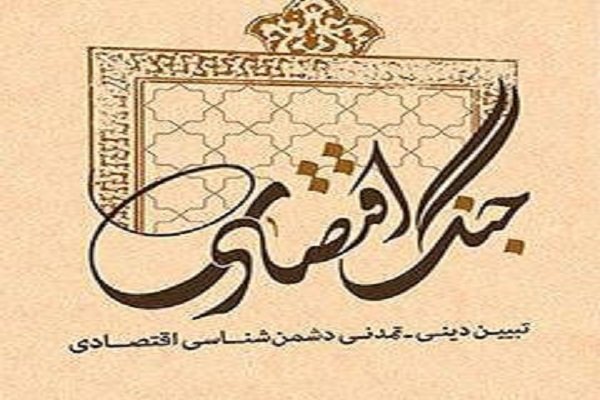 جنگ اقتصادی
تبیین دینی - تمدنی دشمن‌شناسی اقتصادی